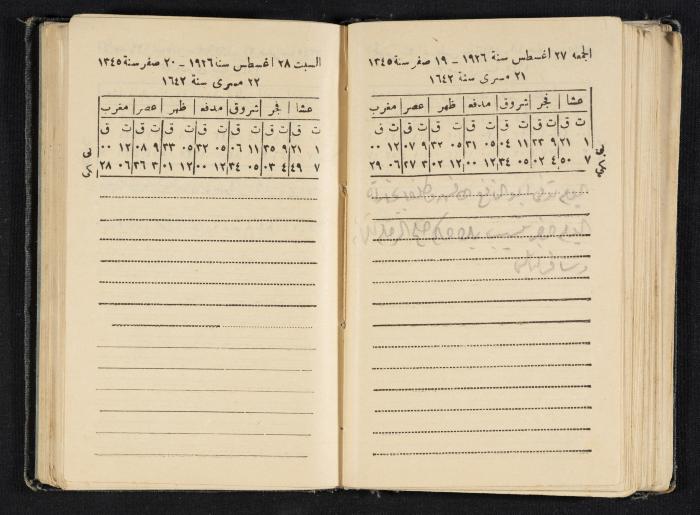 الجمعه ٢٧ اغسطس سنة ١٩٢٦ – ١٩ صفر سنة ١٣٤٥
٢١ مسرى سنة ١٦٤٢
عشا فجر شروق مدفه ظهر عصر مغرب
ت ق ت ق ت ق ت ق ت ق ت ق ت ق
١ ٢١ ٩ ٣٣ ١١ ٠٤ ٠٥ ٣١ ٠٥ ٣٢ ٩ ٠٧ ١٢ ٠٠
٧ ٥٠ ٤ ٠٢ ٠٥ ٣٤ ١٢ ٠٠ ١٢ ٠٢ ٣ ٣٧ ٠٦ ٢٩
السبت ٢٨ اغسطس سنة ١٩٢٦ – ٢٠ صفر سنة ١٣٤٥
٢٢ مسرى سنة ١٦٤٢
عشا فجر شروق مدفه ظهر عصر مغرب
ت ق ت ق ت ق ت ق ت ق ت ق ت ق
١ ٢١ ٩ ٣٥ ١١ ٠٦ ٠٥ ٣٢ ٠٥ ٣٣ ٩ ٠٨ ١٢ ٠٠
٧ ٤٩ ٤ ٠٣ ٠٥ ٣٤ ١٢ ٠٠ ١٢ ٠١ ٣ ٣٦ ٠٦ ٢٨